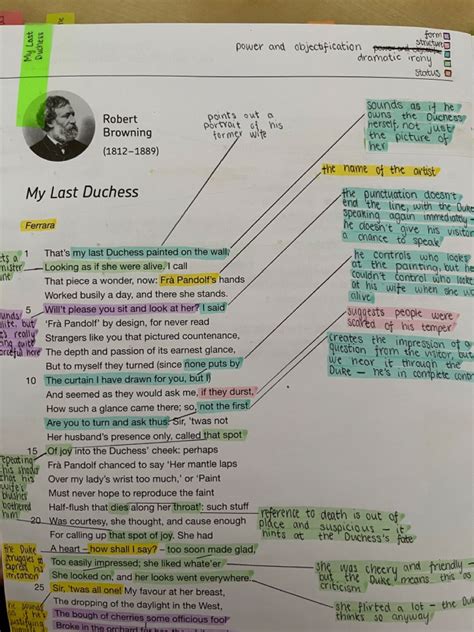 My Last
Duchess
power and objectification
form
structure
dramatic irony
status
Robert
Browning
(1812–1889)
points out a
portrait of his
former wife
sounds as if he
owns the Duchess
herself, not just
the picture of
her
the name of the artist
My Last Duchess
Ferrara
the punctuation doesn't
end the line, with the Duke
speaking again immediately –
he doesn't give his visitor
a chance to speak
he controls who looks
at the painting, but he
couldn't control who looked
at his wife when she was
alive
suggests people were
scared of his temper
creates the impression of a
question from the visitor, but
we hear it through the
Duke – he's in complete control
1 That's my last Duchess painted on the wall,
Looking as if she were alive. I call
That piece a wonder, now: Frà Pandolf's hands
Worked busily a day, and there she stands.
5 Will't please you sit and look at her? I said
'Frà Pandolf' by design, for never read
Strangers like you that pictured countenance,
The depth and passion of its earnest glance,
But to myself they turned (since none puts by
10 The curtain I have drawn for you, but I)
And seemed as they would ask me, if they durst,
How such a glance came there; so, not the first
Are you to turn and ask thus. Sir, 'twas not
Her husband's presence only, called that spot
15 Of joy into the Duchess' cheek: perhaps
Frà Pandolf chanced to say 'Her mantle laps
Over my lady's wrist too much,' or 'Paint
Must never hope to reproduce the faint
Half-flush that dies along her throat': such stuff
20 Was courtesy, she thought, and cause enough
For calling up that spot of joy. She had
A heart – how shall I say? – too soon made glad,
Too easily impressed; she liked whate'er
She looked on, and her looks went everywhere.
25 Sir, 'twas all one! My favour at her breast,
The dropping of the daylight in the West,
The bough of cherries some officious fool
Broke in the orchard for her
reference to death is out of
place and suspicious – it
hints at the Duchess's fate
she was cheery and friendly –
but the Duke means this as
criticism
she flirted a lot – the Duke
thinks so anyway
repeating
his
wife's
blushes
bothered
him
the Duke
struggles to
express his
irritation
he sounds
as if he's
justifying